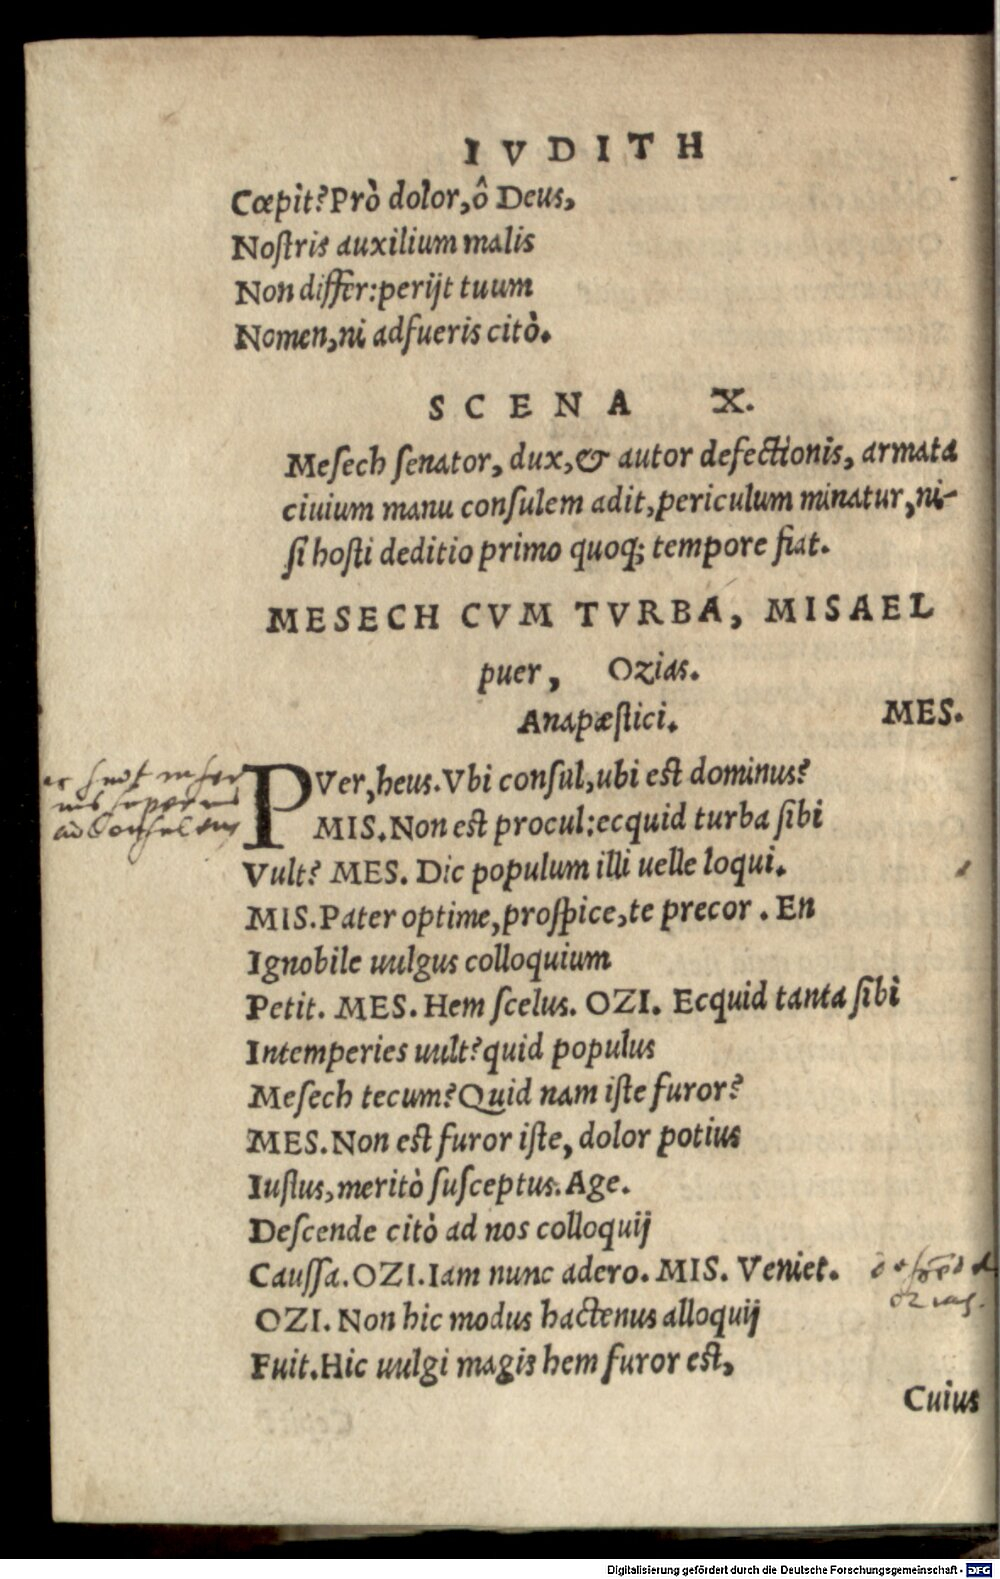 IVDITH
Cœpit? Prò dolor, ô Deus,
Noſtris auxilium malis
Non differ: perijt tuum
Nomen, ni adfueris citò.
SCENA X.
Meſech ſenator, dux, & autor defectionis, armata
ciuium manu conſulem adit, periculum minatur, ni-
ſi hoſti deditio primo quoq; tempore fiat.
MESECH CVM TVRBA, MISAEL
puer, Ozias.
Anapæſtici. MES.
PVer, heus. Vbi conſul, ubi eſt dominus?
MIS. Non eſt procul: ecquid turba ſibi
Vult? MES. Dic populum illi uelle loqui.
MIS. Pater optime, proſpice, te precor. En
Ignobile uulgus colloquium
Petit. MES. Hem ſcelus. OZI. Ecquid tanta ſibi
Intemperies uult? quid populus
Meſech tecum? Quid nam iſte furor?
MES. Non eſt furor iſte, dolor potius
Iuſtus, meritò ſuſceptus. Age.
Deſcende citò ad nos colloquij
Cauſſa. OZI. Iam nunc adero. MIS. Veniet.
ozias.
OZI. Non hic modus hactenus alloquij
Fuit. Hic uulgi magis hem furor eſt,
Cuius
Digitalisierung gefördert durch die Deutsche Forschungsgemeinschaft - DFG